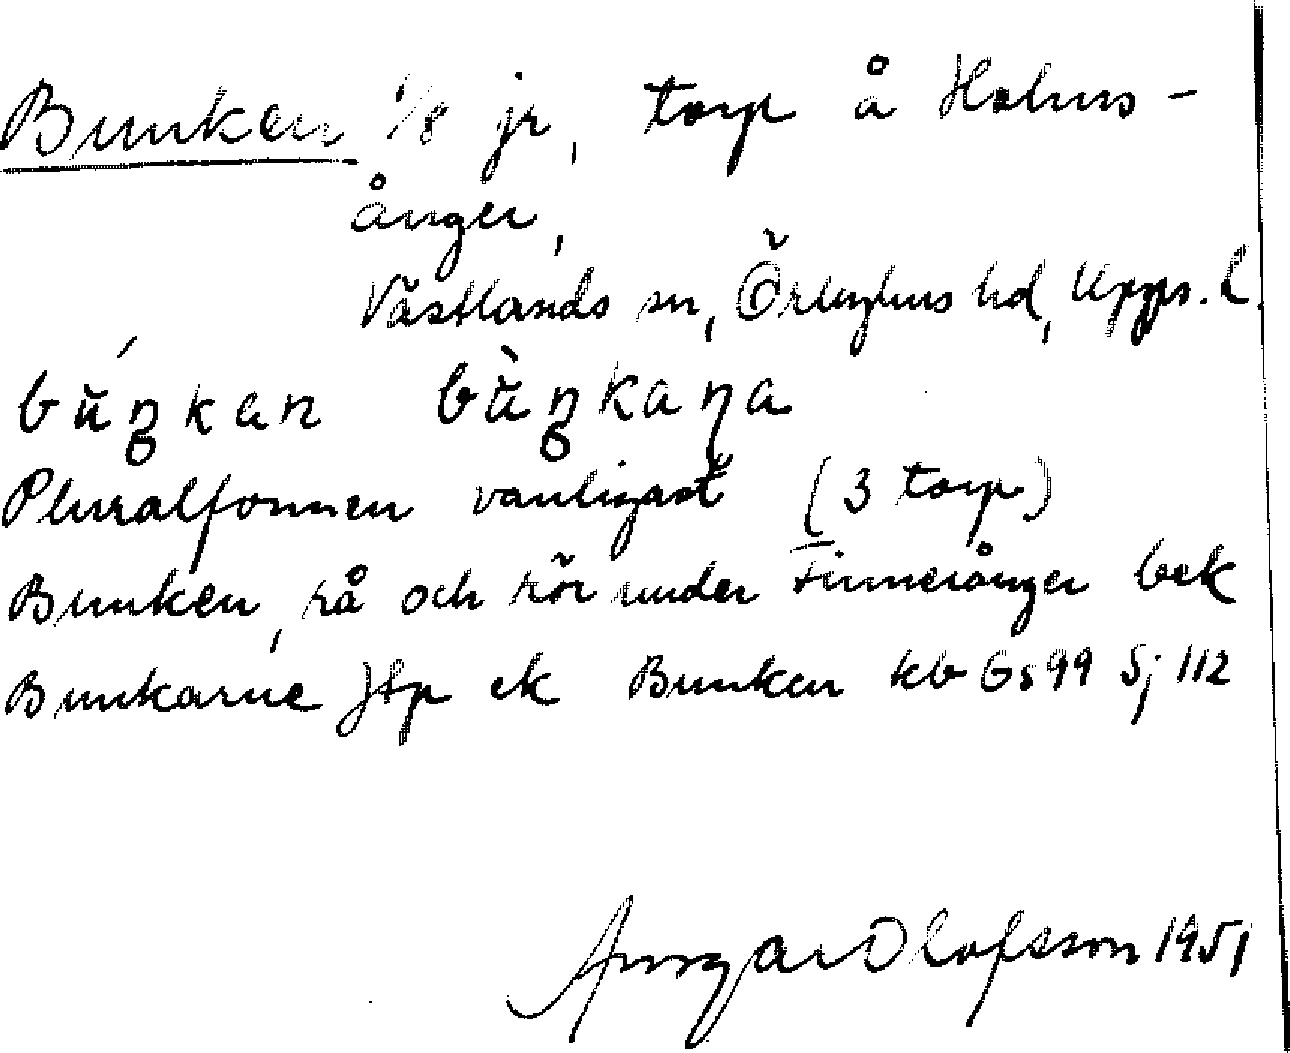 Bunken 1/8 jr, torp å Holms-
ånger,
Västlands sn, Örbyhus hd, Upps. l.
bŭ́ŋkan bŭ̀ŋkaṇa
Pluralformen vanligast (3 torp)
Bunken, rå och rör under Finnerånger bek
Bunkarne Jfp ek Bunken kb Gs99 Sj 112
Ansgar Olofsson 1951